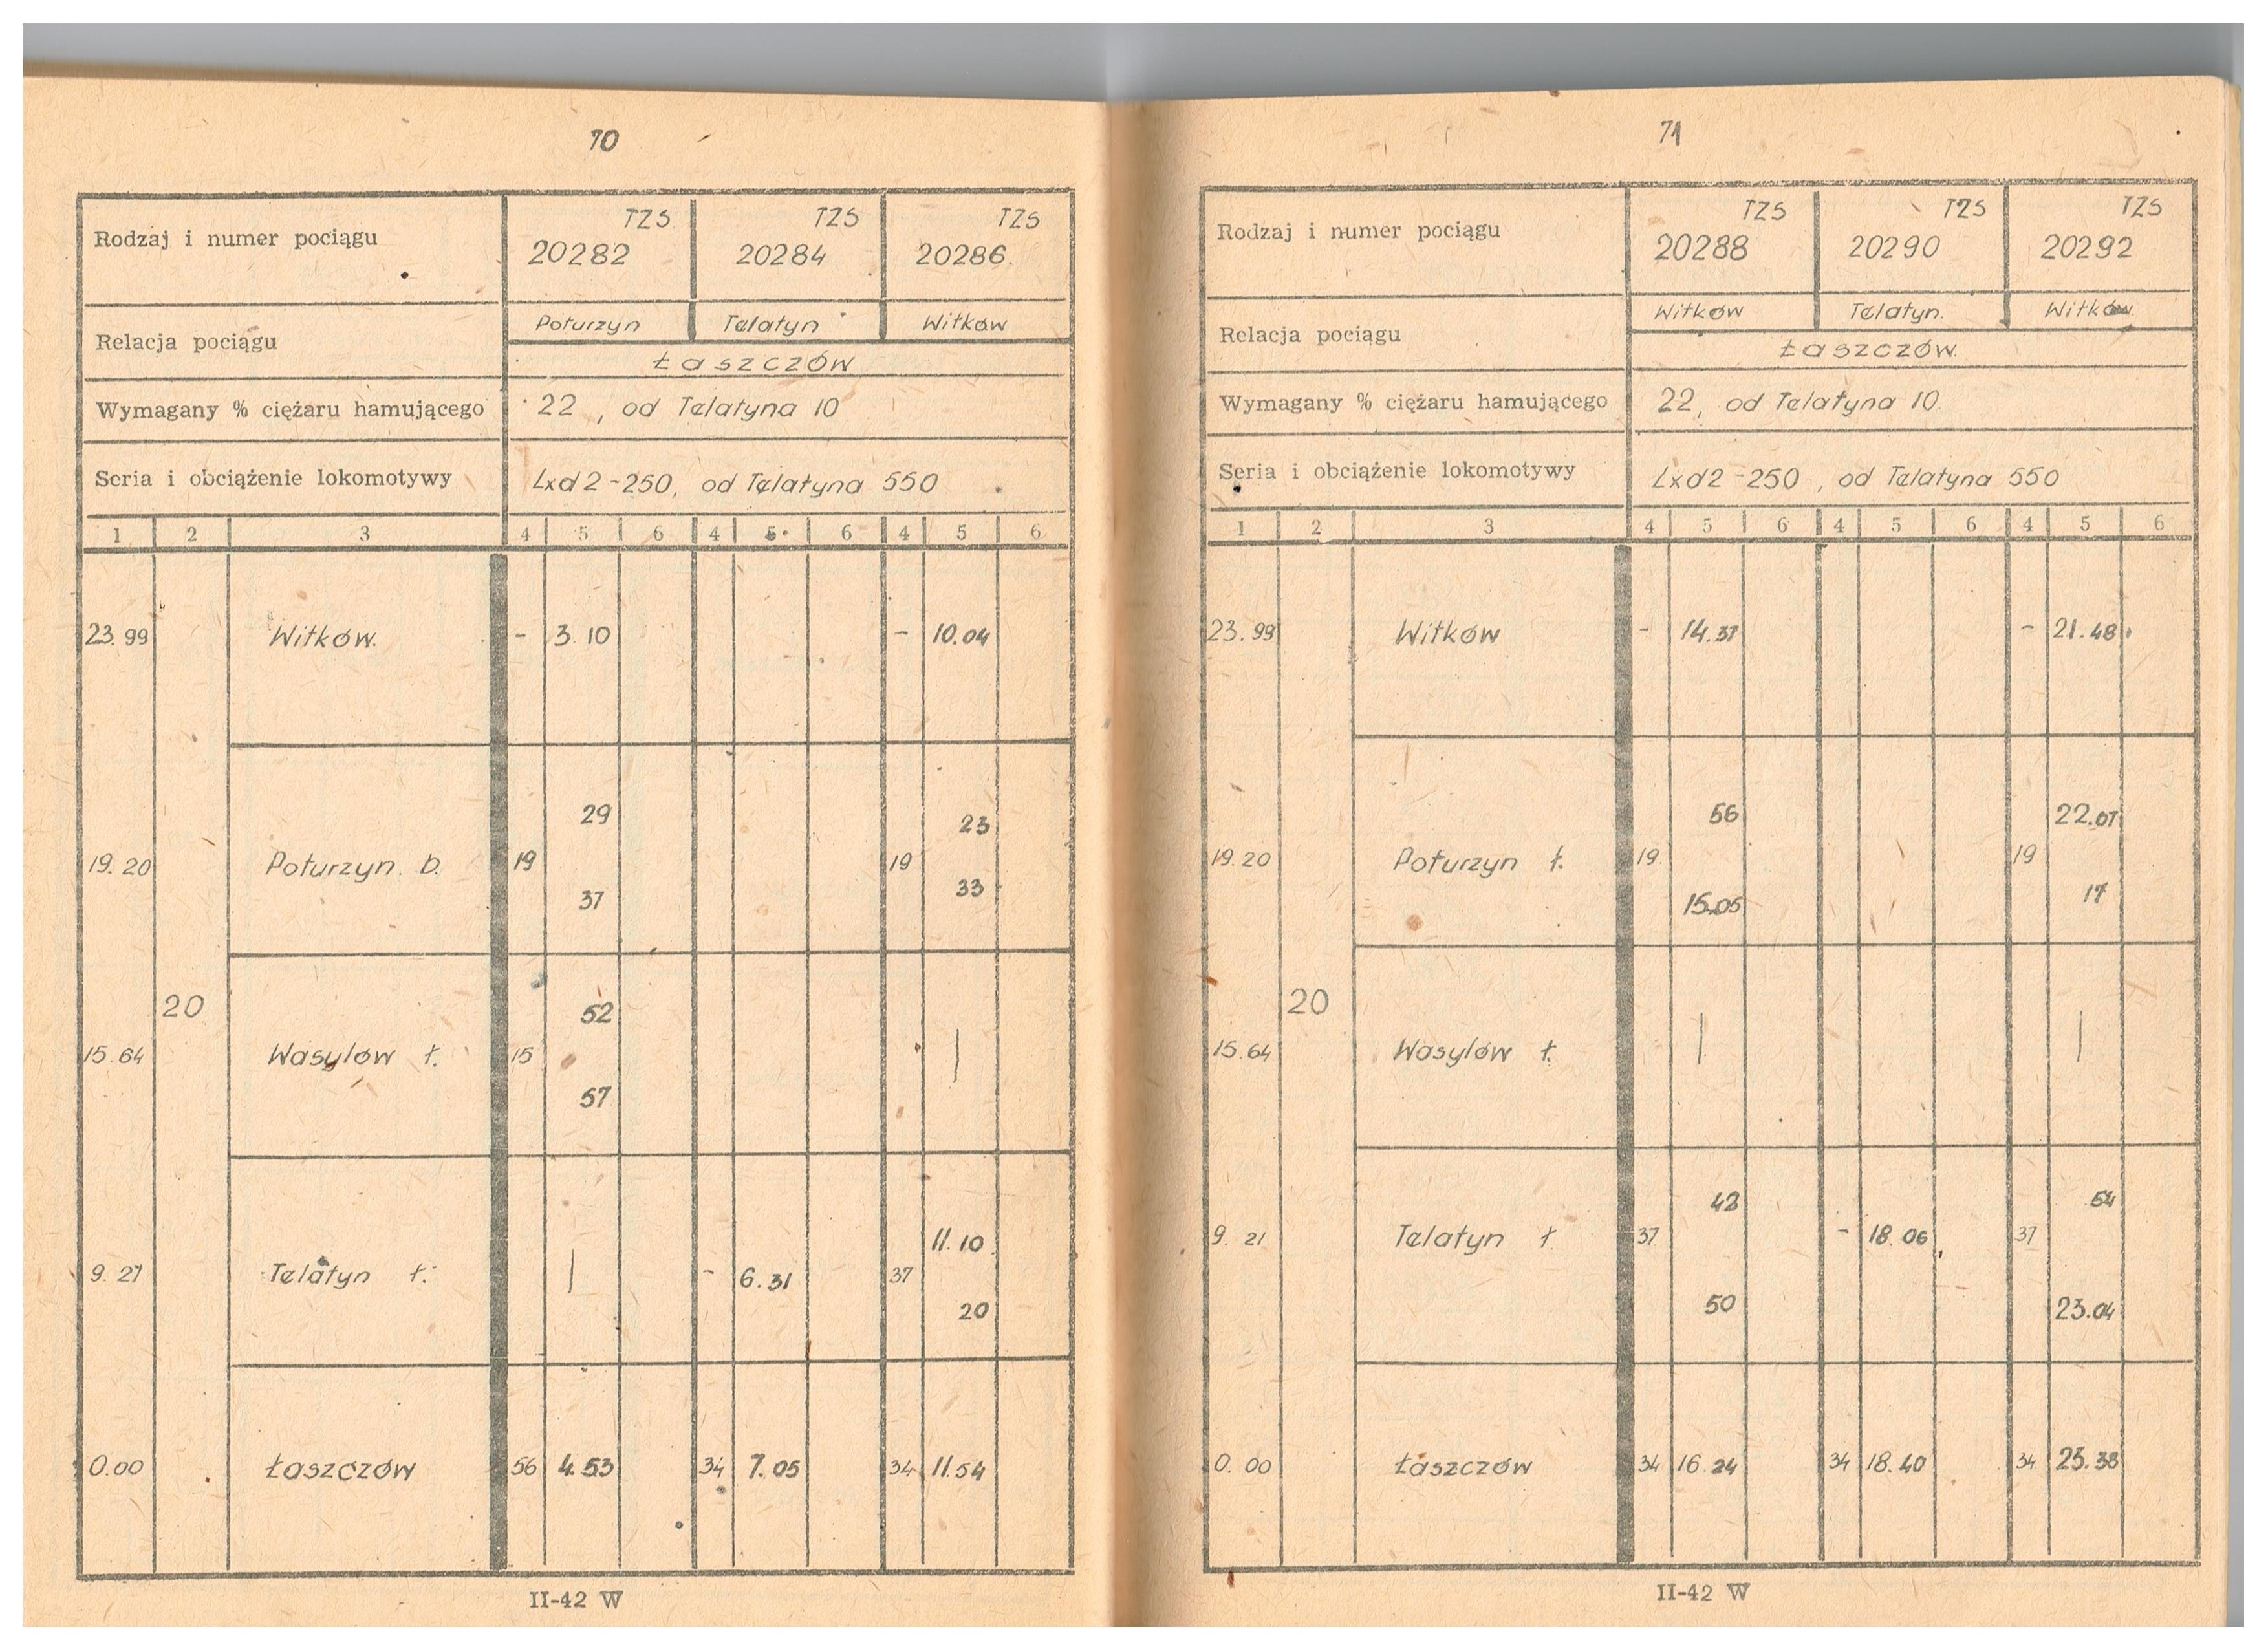 70
Rodzaj i numer pociągu TZS TZS TZS
20282 20284 20286.
Relacja pociągu Poturzyn Telatyn Witków
Łaszczów
Wymagany % ciężaru hamującego 22, od Telatyna 10
Seria i obciążenie lokomotywy Lxd2-250, od Telatyna 550
1 2 3 4 5 6 4 5 6 4 5 6
23.99 Witków. - 3.10 - 10.04
29 23
19.20 Poturzyn b. 19 19
37 33
20 52
15.64 Wasylów ł. 15 |
57
11.10
9.27 Telatyn ł. | - 6.31 37
20
0.00 Łaszczów 56 4.53 34 7.05 34 11.54
II-42 W
71
Rodzaj i numer pociągu TZS TZS TZS
20288 20290 20292
Relacja pociągu Witków Telatyn. Witków
Łaszczów.
Wymagany % ciężaru hamującego 22, od Telatyna 10
Seria i obciążenie lokomotywy Lxd2-250, od Telatyna 550
1 2 3 4 5 6 4 5 6 4 5 6
23.99 Witków - 14.37 - 21.48
56 22.07
19.20 Poturzyn ł. 19 19
15.05 17
20
15.64 Wasylów ł. | |
42 54
9.21 Telatyn ł 37 - 18.06 37
50 23.04
0.00 Łaszczów 34 16.24 34 18.40 34 23.38
II-42 W